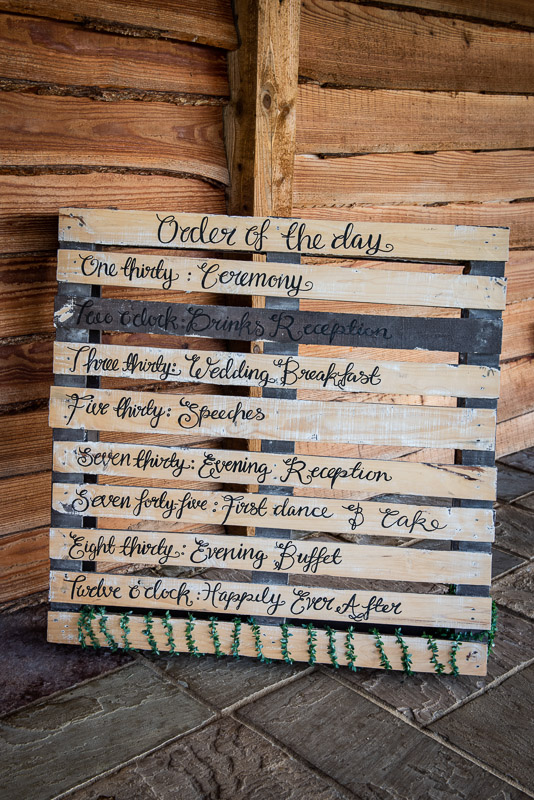 Order of the day
One thirty : Ceremony
Two o'clock : Drinks Reception
Three thirty : Wedding Breakfast
Five thirty : Speeches
Seven thirty : Evening Reception
Seven forty five : First dance & Cake
Eight thirty : Evening Buffet
Twelve o'clock : Happily Ever After